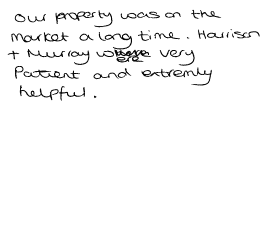 our property was on the
market a long time. Harrison
+ Murray were very
Patient and extremly
helpful.